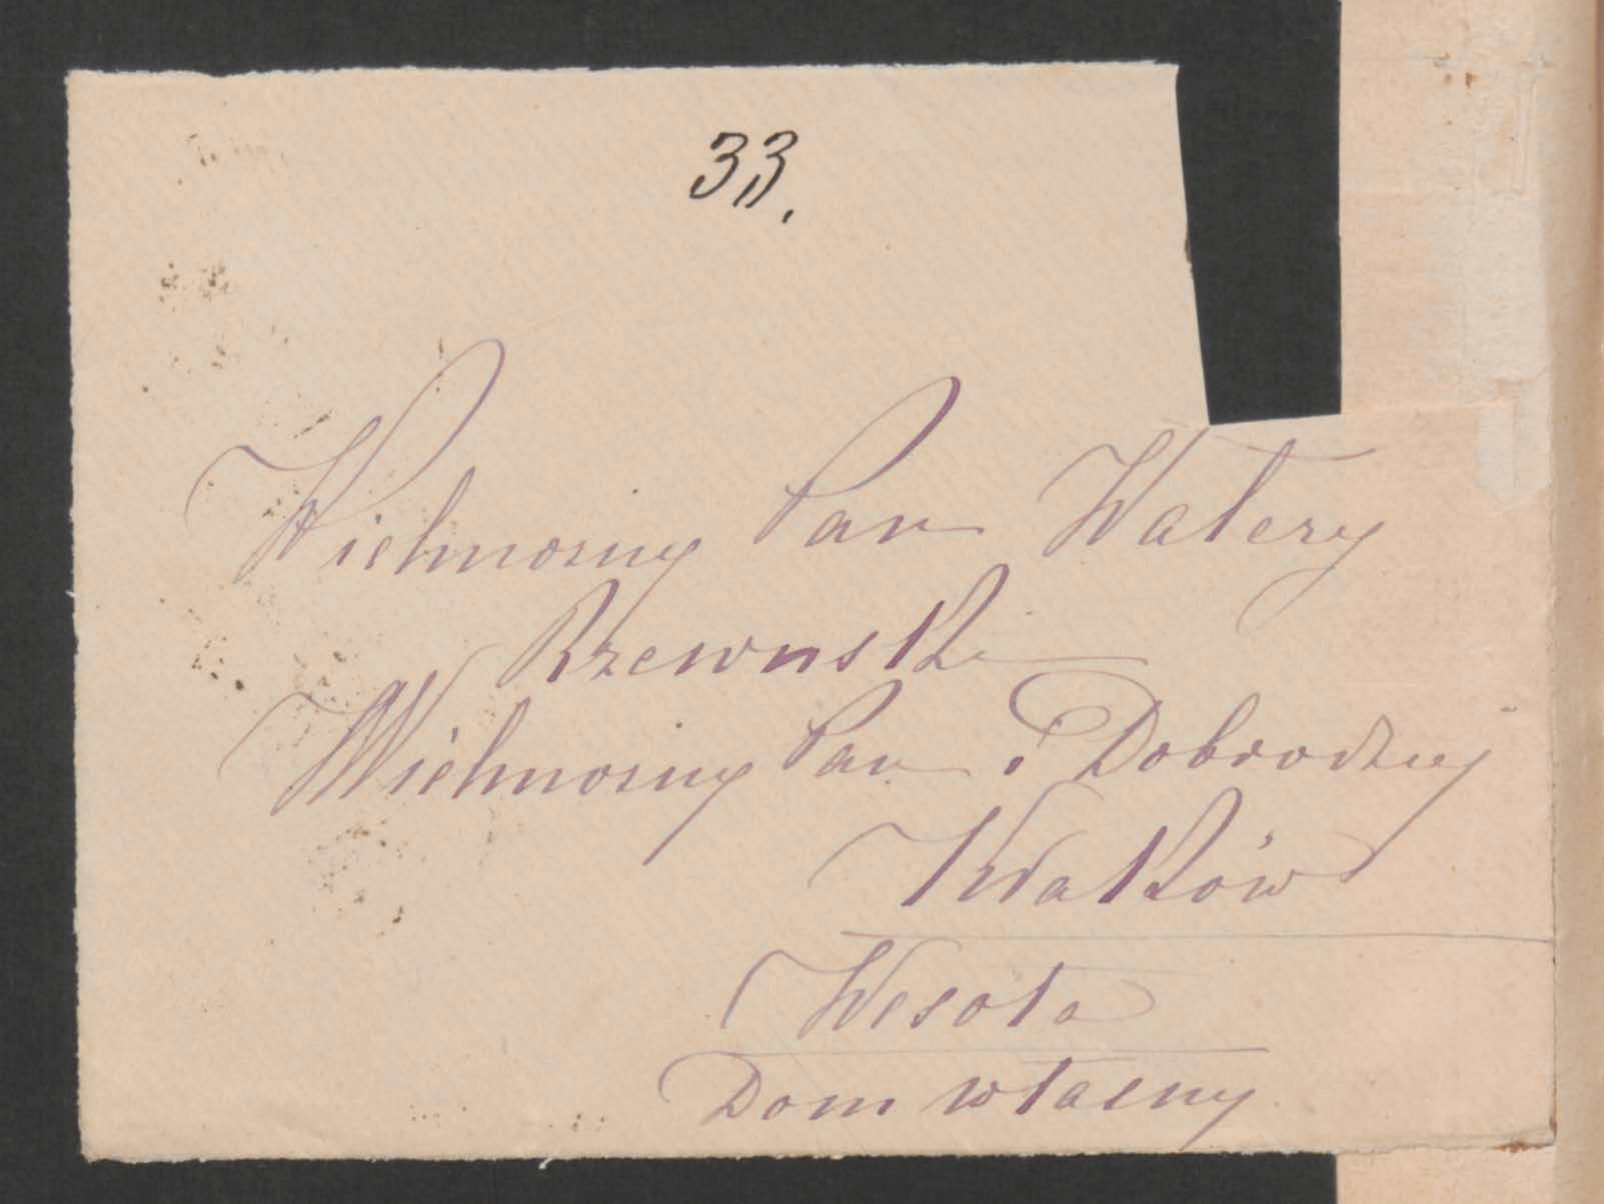 33.
Wielmożny Pan Walery
Rzewuski
Wielmożny Pan i Dobrodziej
Kraków
Wesoła
Dom własny